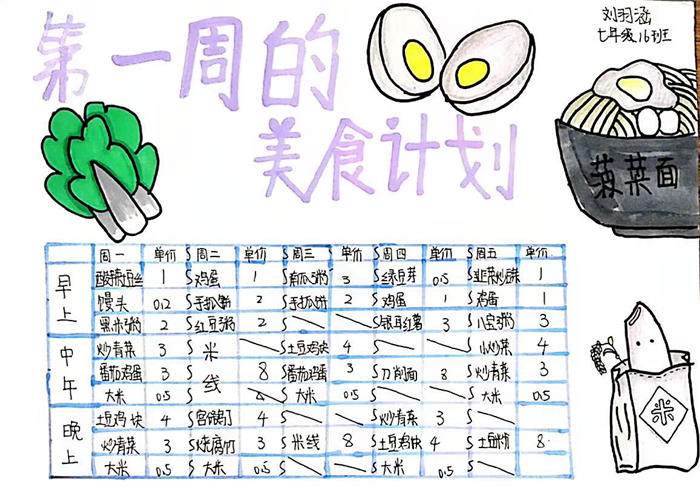 刘羽涵
七年级16班
第一周的
美食计划
菠菜面
周一 单价 周二 单价 周三 单价 周四 单价 周五 单价
早上
酸辣土豆丝 1 鸡蛋 1 南瓜粥 3 绿豆芽 0.5 韭菜炒鸡蛋 1
馒头 0.2 手抓饼 2 手抓饼 2 鸡蛋 1 鸡蛋 1
黑米粥 2 红豆粥 2 银耳红薯 3 八宝粥 3
中午
炒青菜 3 米线 8 土豆鸡块 4 小炒菜 4
番茄鸡蛋 3 番茄鸡蛋 3 刀削面 8 炒青菜 3
大米 0.5 大米 0.5 大米 0.5
晚上
土豆鸡块 4 宫保鸡丁 4 炒青菜 3
炒青菜 3 烧腐竹 3 米线 8 土豆鸡块 4 土豆粉 8
大米 0.5 大米 0.5 大米 0.5
米